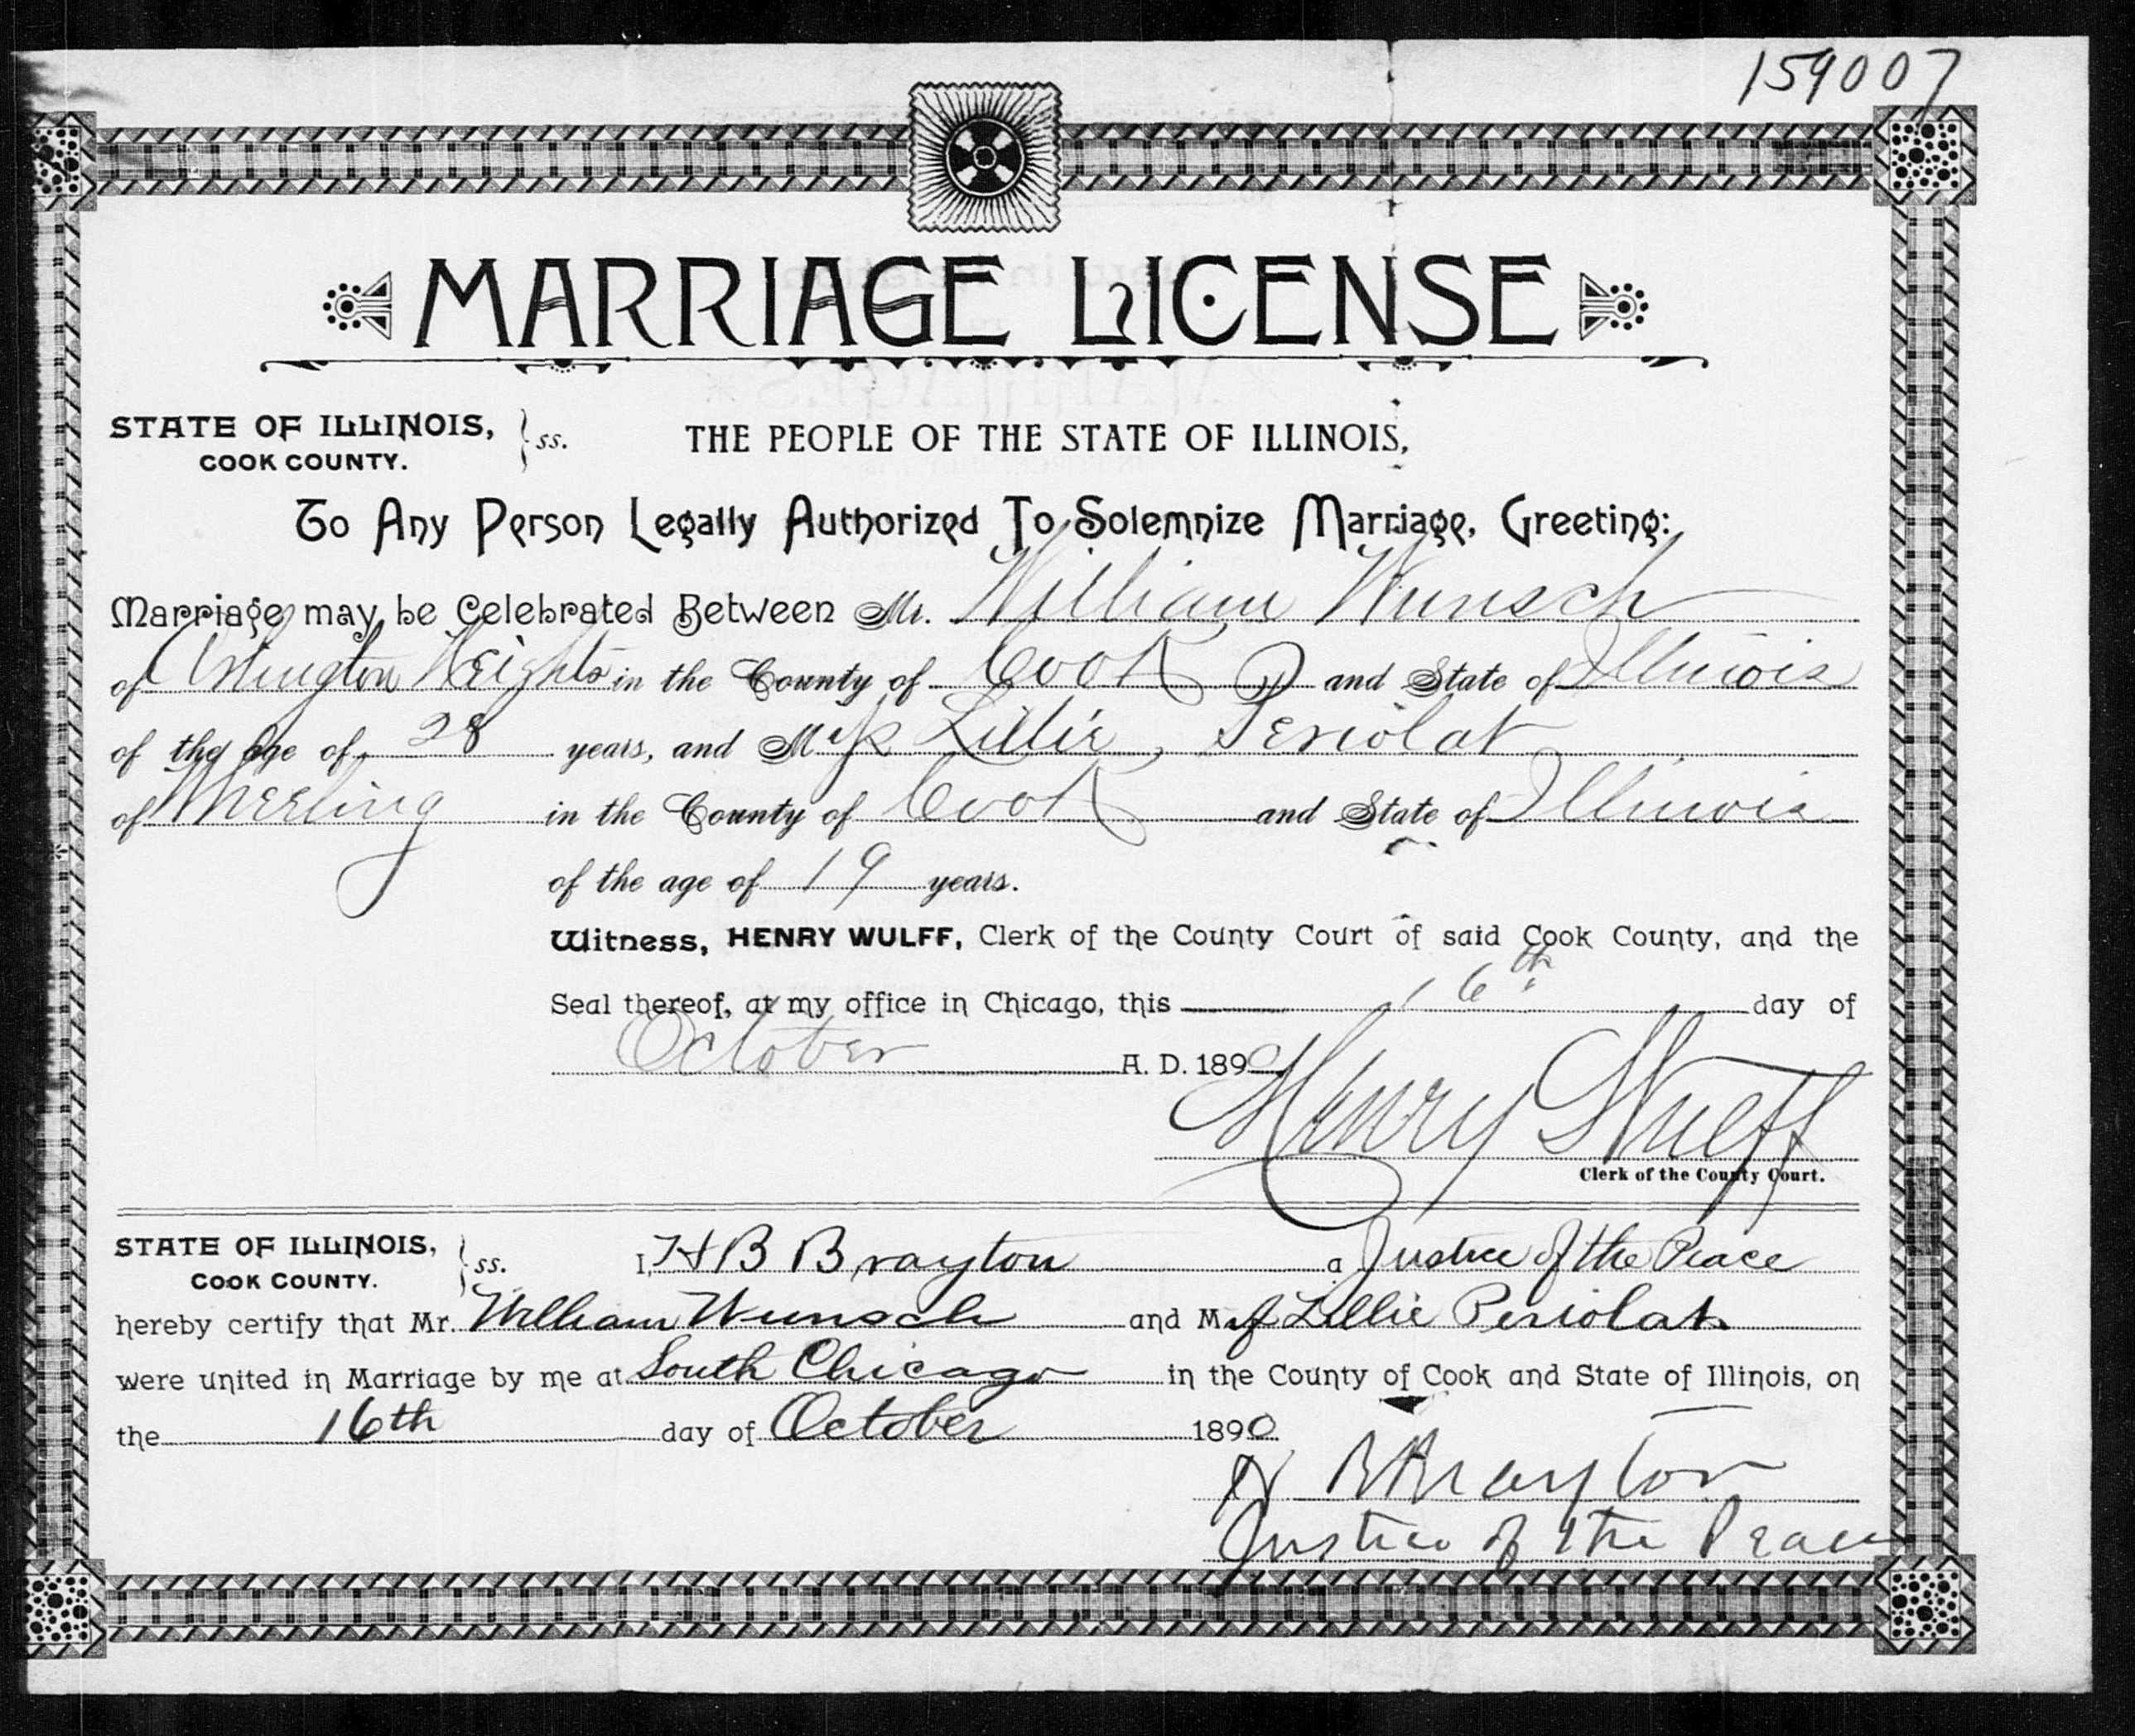 159007
MARRIAGE LICENSE
STATE OF ILLINOIS, } ss. THE PEOPLE OF THE STATE OF ILLINOIS,
COOK COUNTY.
To Any Person Legally Authorized To Solemnize Marriage, Greeting:
Marriage may be Celebrated Between Mr. William Wunsch
of Arlington Heights in the County of Cook and State of Illinois
of the age of 28 years, and Miss Lillie Periolat
of Wheeling in the County of Cook and State of Illinois
of the age of 19 years.
Witness, HENRY WULFF, Clerk of the County Court of said Cook County, and the
Seal thereof, at my office in Chicago, this 16th day of
October A. D. 1890
Henry Wulff
Clerk of the County Court.
STATE OF ILLINOIS, } ss. I, H B Brayton a Justice of the Peace
COOK COUNTY.
hereby certify that Mr. William Wunsch and Miss Lillie Periolat
were united in Marriage by me at South Chicago in the County of Cook and State of Illinois, on
the 16th day of October 1890
H B Brayton
Justice of the Peace